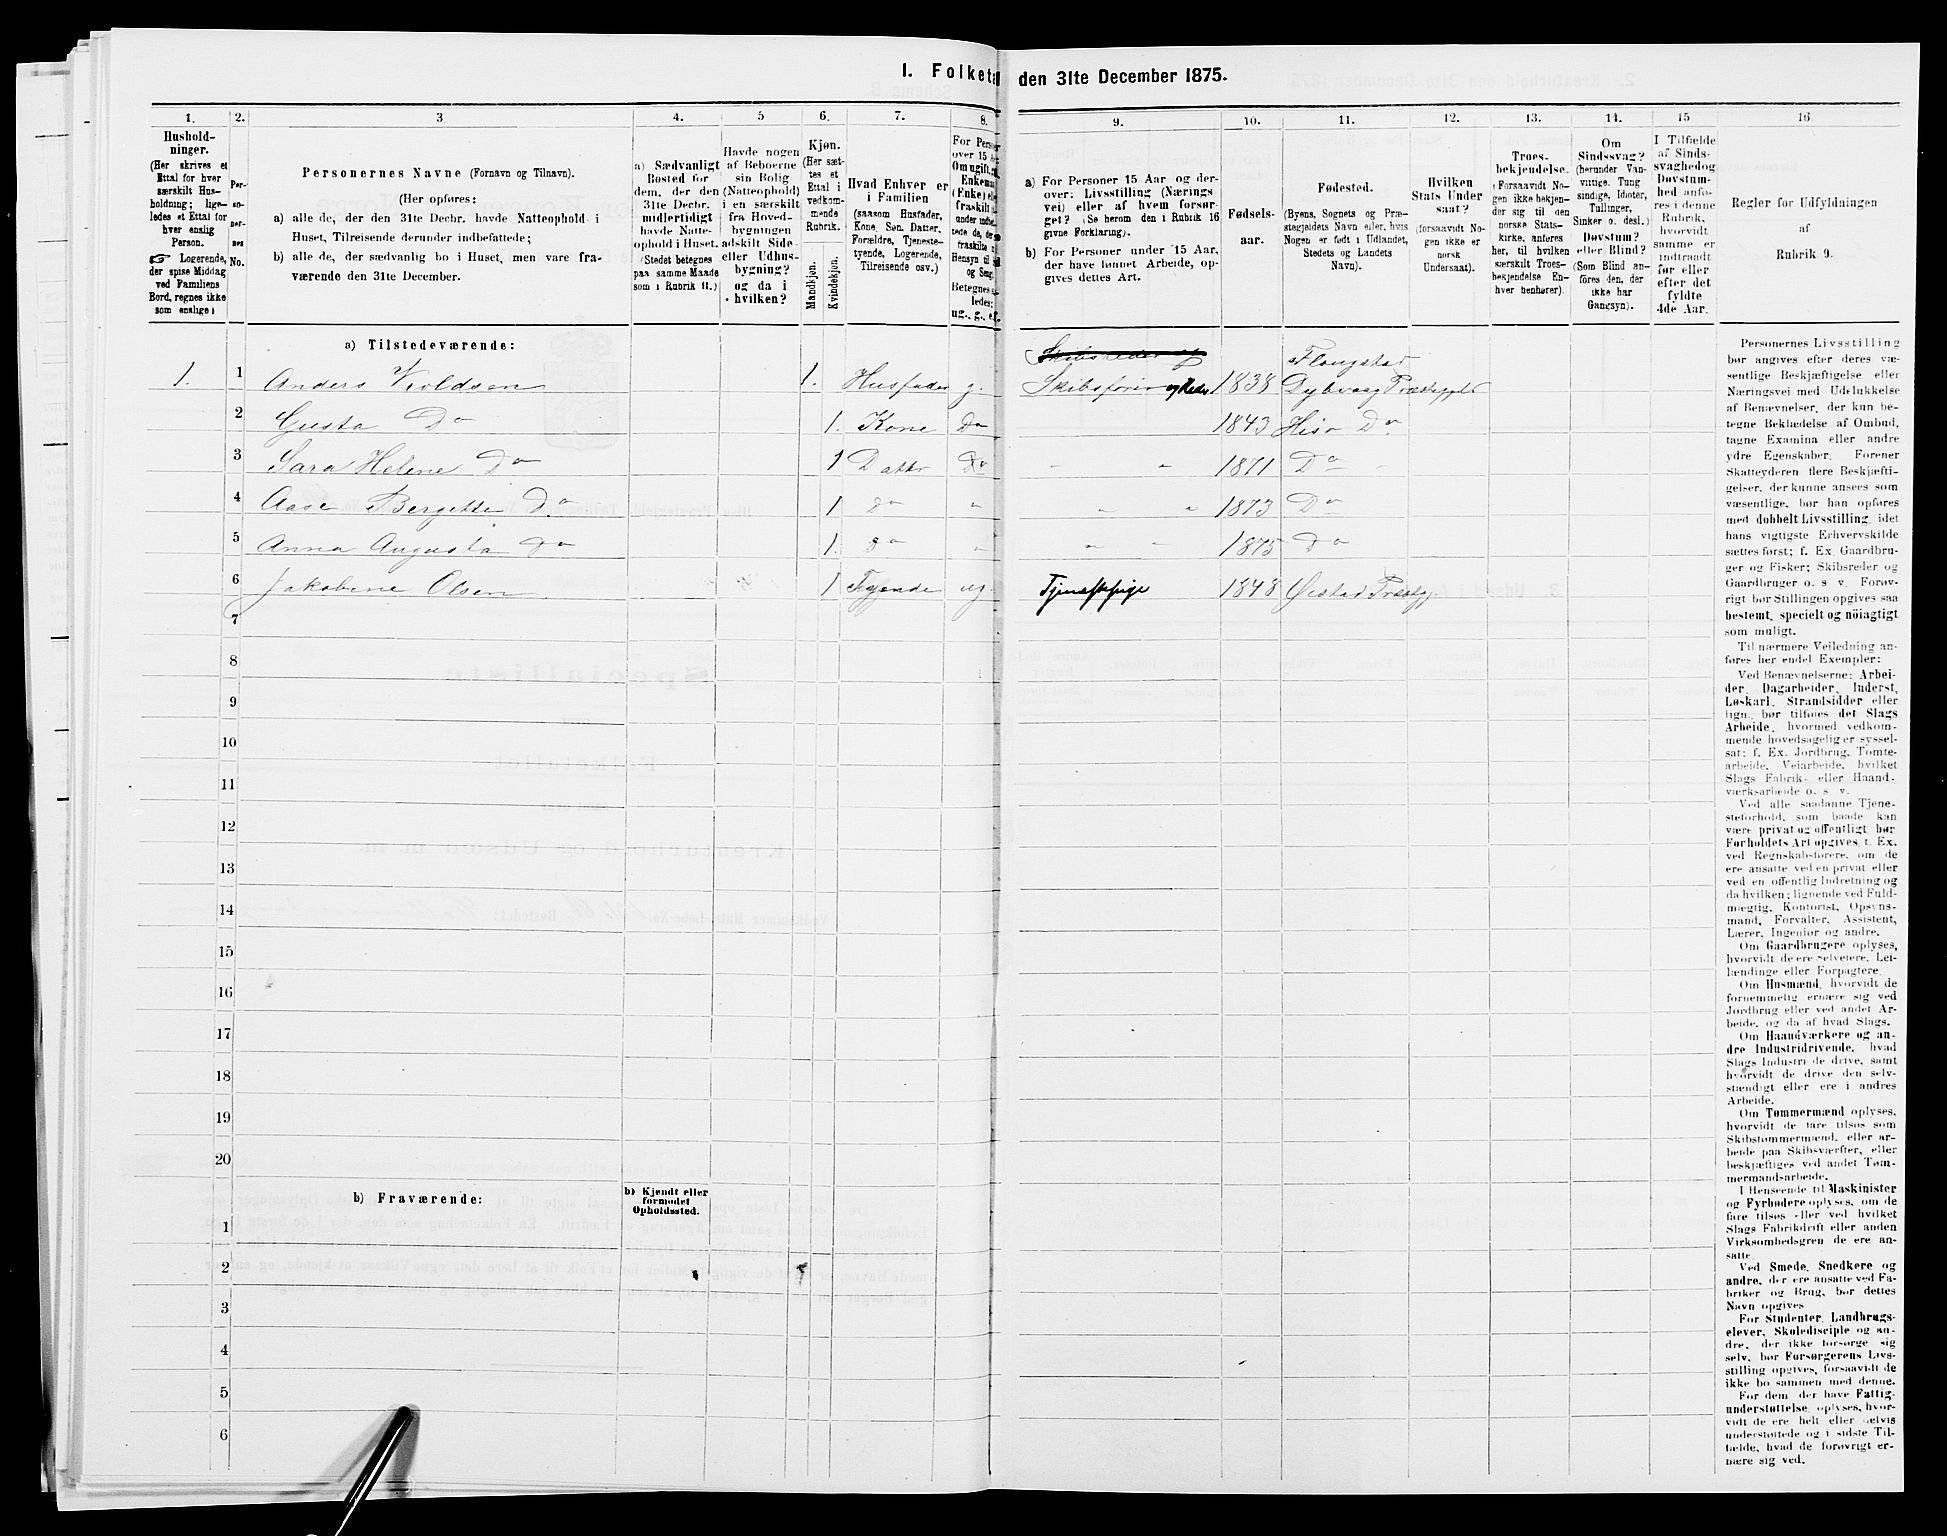 I. Folket
den 31te December 1875.
1.
2.
3
4.
5
6.
7.
8.
9.
10.
11.
12.
13.
14.
15
16.
Hushold-
ninger.
(Her skrives et
Ettal for hver
særskilt Hus-
holdning; lige-
ledes et Ettal for
hver enslig
Person.
☞ Logerende,
der spise Middag
ved Familiens
Bord, regnes ikke
som enslige)
Per-
so-
ner-
nes
No.
Personernes Navne (Fornavn og Tilnavn).
(Her opføres:
a) alle de, der den 31te Decbr. havde Natteophold i
Huset, Tilreisende derunder indbefattede;
b) alle de, der sædvanlig bo i Huset, men vare fra-
værende den 31te December.
a) Sædvanligt
Bosted for
dem, der den
31te Decbr.
midlertidigt
havde Natte-
ophold i Huset.
(Stedet betegnes
paa samme Maade
som i Rubrik 11.)
Havde nogen
af Beboerne
sin Bolig
(Natteophold)
i en særskilt
fra Hoved-
bygningen
adskilt Side-
eller Udhus-
bygning?
og da i
hvilken?
Kjøn.
(Her sæt-
tes et
Ettal i
vedkom-
mende
Rubrik.
Mandkjøn.
Kvindekjøn.
Hvad Enhver er
i Familien
(saasom Husfader,
Kone, Søn, Datter,
Forældre, Tjeneste-
tyende, Logerende,
Tilreisende osv.)
For Person
over 15 Aar
Om ugift,
Enkema
(Enke) el
fraskilt
Betegnes s
ledes:
ug., g., e.f.
a) For Personer 15 Aar og der-
over: Livsstilling (Nærings
vei) eller af hvem forsør-
get? (Se herom den i Rubrik 16
givne Forklaring).
b) For Personer under 15 Aar,
der have lønnet Arbeide, op-
gives dettes Art.
Fødsels-
aar.
Fødested.
(Byens, Sognets og Præ-
stegjeldets Navn eller, hvis
Nogen er født i Udlandet,
Stedets og Landets
Navn).
Hvilken
Stats Under
saat?
(forsaavidt No-
gen ikke er
norsk
Undersaat).
Troes-
bekjendelse.
(Forsaavidt No-
gen ikke bekjen-
der sig til den
norske Stats-
kirke, anføres
her, til hvilken
særskilt Troes-
bekjendelse En-
hver henhører).
Om
Sindssvag?
(herunder Van-
vittige, Tung
sindige, Idioter,
Tullinger,
Sinker o. desl.)
Døvstum?
eller Blind?
(Som Blind an-
føres den, der
ikke har
Gangsyn).
I Tilfælde
af Sinds-
svaghed og
Døvstum-
hed anfø-
res i denne
Rubrik,
hvorvidt
samme er
indtraadt
før eller
efter det
fyldte
4de Aar.
Regler for Udfyldningen
af
Rubrik 9.
a) Tilstedeværende:
Skibsreder og
Flangstad
1. 1 Anders Kroldsen 1. Husfader g. Skibsfører og Reder 1838 Dybvaag Præstegjeld
2 Gusta Do 1. Kone Do 1843 Hisø Do
3 Sara Helene Do 1 Datter Do " " 1871 Do
4 Aase Bergette Do 1 do " " " 1873 Do
5 Anna Augusta Do 1. do " " " 1875 Do
6 Jakobine Olsen 1 Tyende ug. Tjenestepige 1848 Øiestad Præstgj.
7
8
9
10
11
12
13
14
15
16
17
18
19
20
b) Fraværende:
b) Kjendt eller
formodet
Opholdssted.
1
2
3
4
5
6
Personernes Livsstilling
bør angives efter deres væ-
sentlige Beskjæftigelse eller
Næringsvei med Udelukkelse
af Benævnelser, der kun be-
tegne Beklædelse af Ombud,
tagne Examina eller andre
ydre Egenskaber. Forener
Skatteyderen flere Beskjæfti-
gelser, der kunne ansees som
væsentlige, bør han opføres
med dobbelt Livsstilling, idet
hans vigtigste Erhvervskilde
sættes først; f. Ex. Gaardbru-
ger og Fisker; Skibsreder og
Gaardbruger o. s v. Forøv-
rigt bør Stillingen opgives saa
bestemt, specielt og nöiagtigt
som muligt.
Til nærmere Veiledning an-
føres her endel Exempler:
Ved Benævnelserne: Arbei-
der, Dagarbeider, Inderst,
Løskarl, Strandsidder eller
lign. bør tilføies det Slags
Arbeide, hvormed vedkom-
mende hovedsagelig er syssel-
sat; f. Ex. Jordbrug, Tomte-
arbeide, Veiarbeide, hvilket
Slags Fabrik- eller Haand-
værksarbeide o. s. v.
Ved alle saadanne Tjene-
steforhold, som baade kan
være privat og offentligt, bør
Forholdets Art opgives, t. Ex.
ved Regnskabsførere, om de
ere ansatte ved en privat eller
ved en offentlig Indretning og
da hvilken; lignende ved Fuld-
mægtig, Kontorist, Opsyns-
mand, Forvalter, Assistent,
Lærer, Ingeniør og andre.
Om Gaardbrugere oplyses,
hvorvidt de ere Selveiere, Lei-
lændinge eller Forpagtere.
Om Husmænd, hvorvidt de
fornemmelig ernære sig ved
Jordbrug eller ved andet Ar-
beide, og da af hvad Slags.
Om Haandværkere og an-
dre Industridrivende, hvad
Slags Industri de drive, samt
hvorvidt de drive den selv-
stændigt eller ere i andres
Arbeide.
Om Tømmermænd oplyses,
hvorvidt de fare tilsøs som
Skibstømmermænd, eller ar-
beide paa Skibsværfter, eller
beskjæftiges ved andet Tøm-
mermandsarbeide.
I Henseende til Maskinister
og Fyrbødere oplyses, om de
fare tilsøs eller ved hvilket
Slags Fabrikdrift eller anden
Virksomhedsgren de ere an-
satte.
Ved Smede, Snedkere og
andre, der ere ansatte ved Fa-
briker og Brug, bør dettes
Navn opgives
For Studenter, Landbrugs-
elever, Skoledisciple og an-
dre, der ikke forsørge sig
selv, bør Forsørgerens Livs-
stilling opgives, forsaavidt de
ikke bo sammen med denne.
For dem, der have Fattig-
understøttelse, oplyses, hvor-
vidt de ere helt eller delvis
understøttede og i sidste Til-
fælde, hvad de forøvrigt er-
nære sig ved.